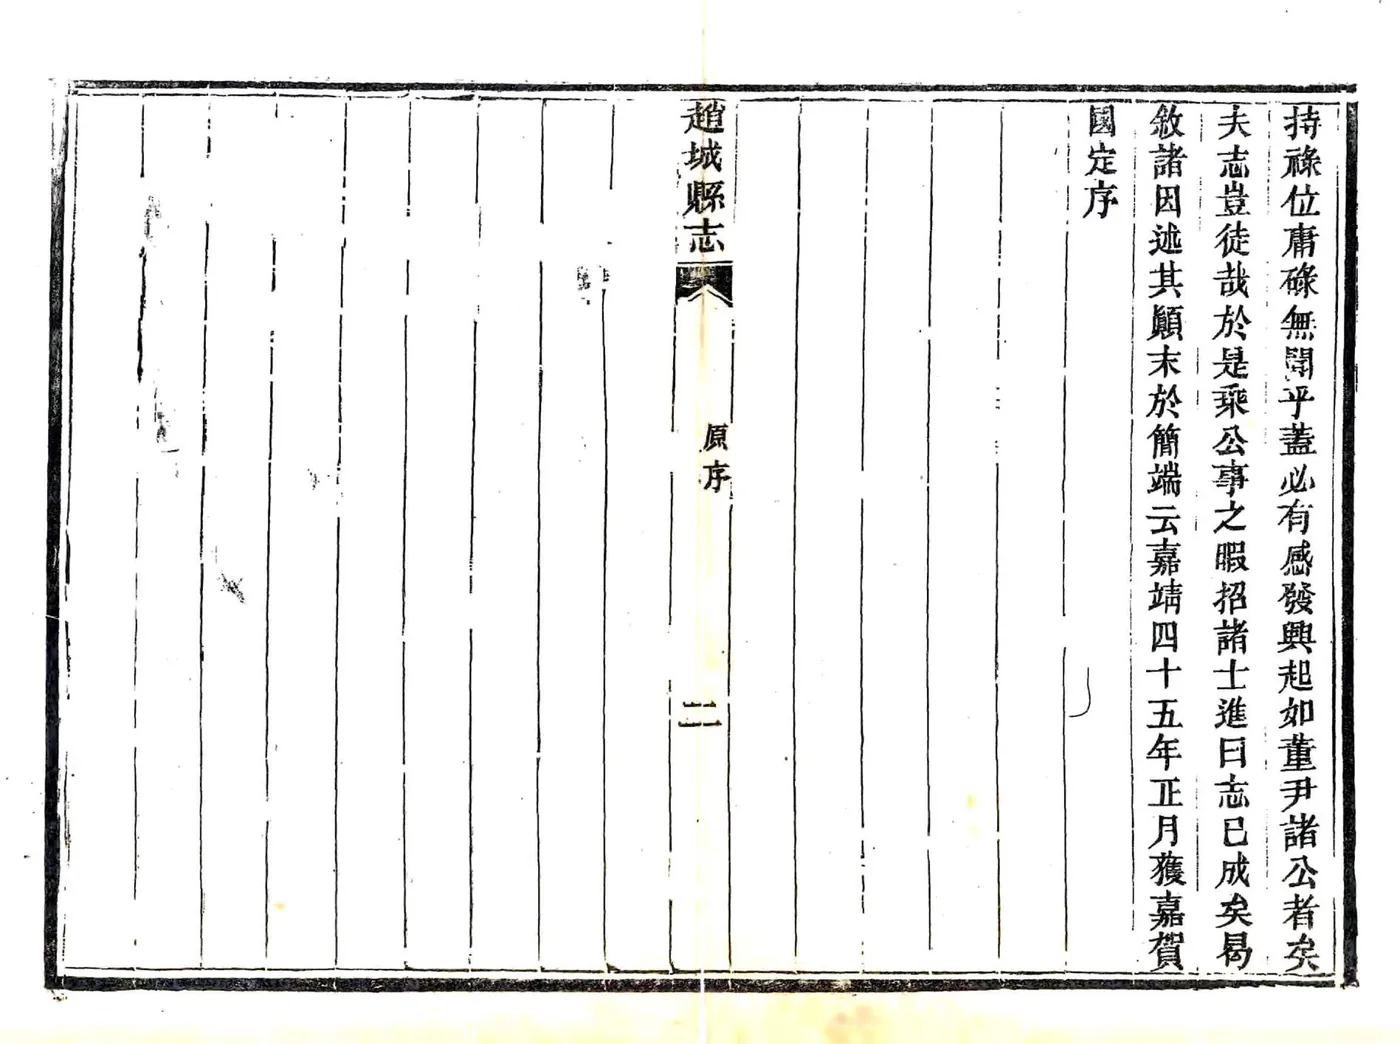 持祿位庸碌無聞乎蓋必有感發興起如董尹諸公者矣
夫志豈徒哉於是乘公事之暇招諸士進曰志已成矣曷
敘諸因述其顛末於簡端云嘉靖四十五年正月獲嘉賀
國定序
趙城縣志
原序
二